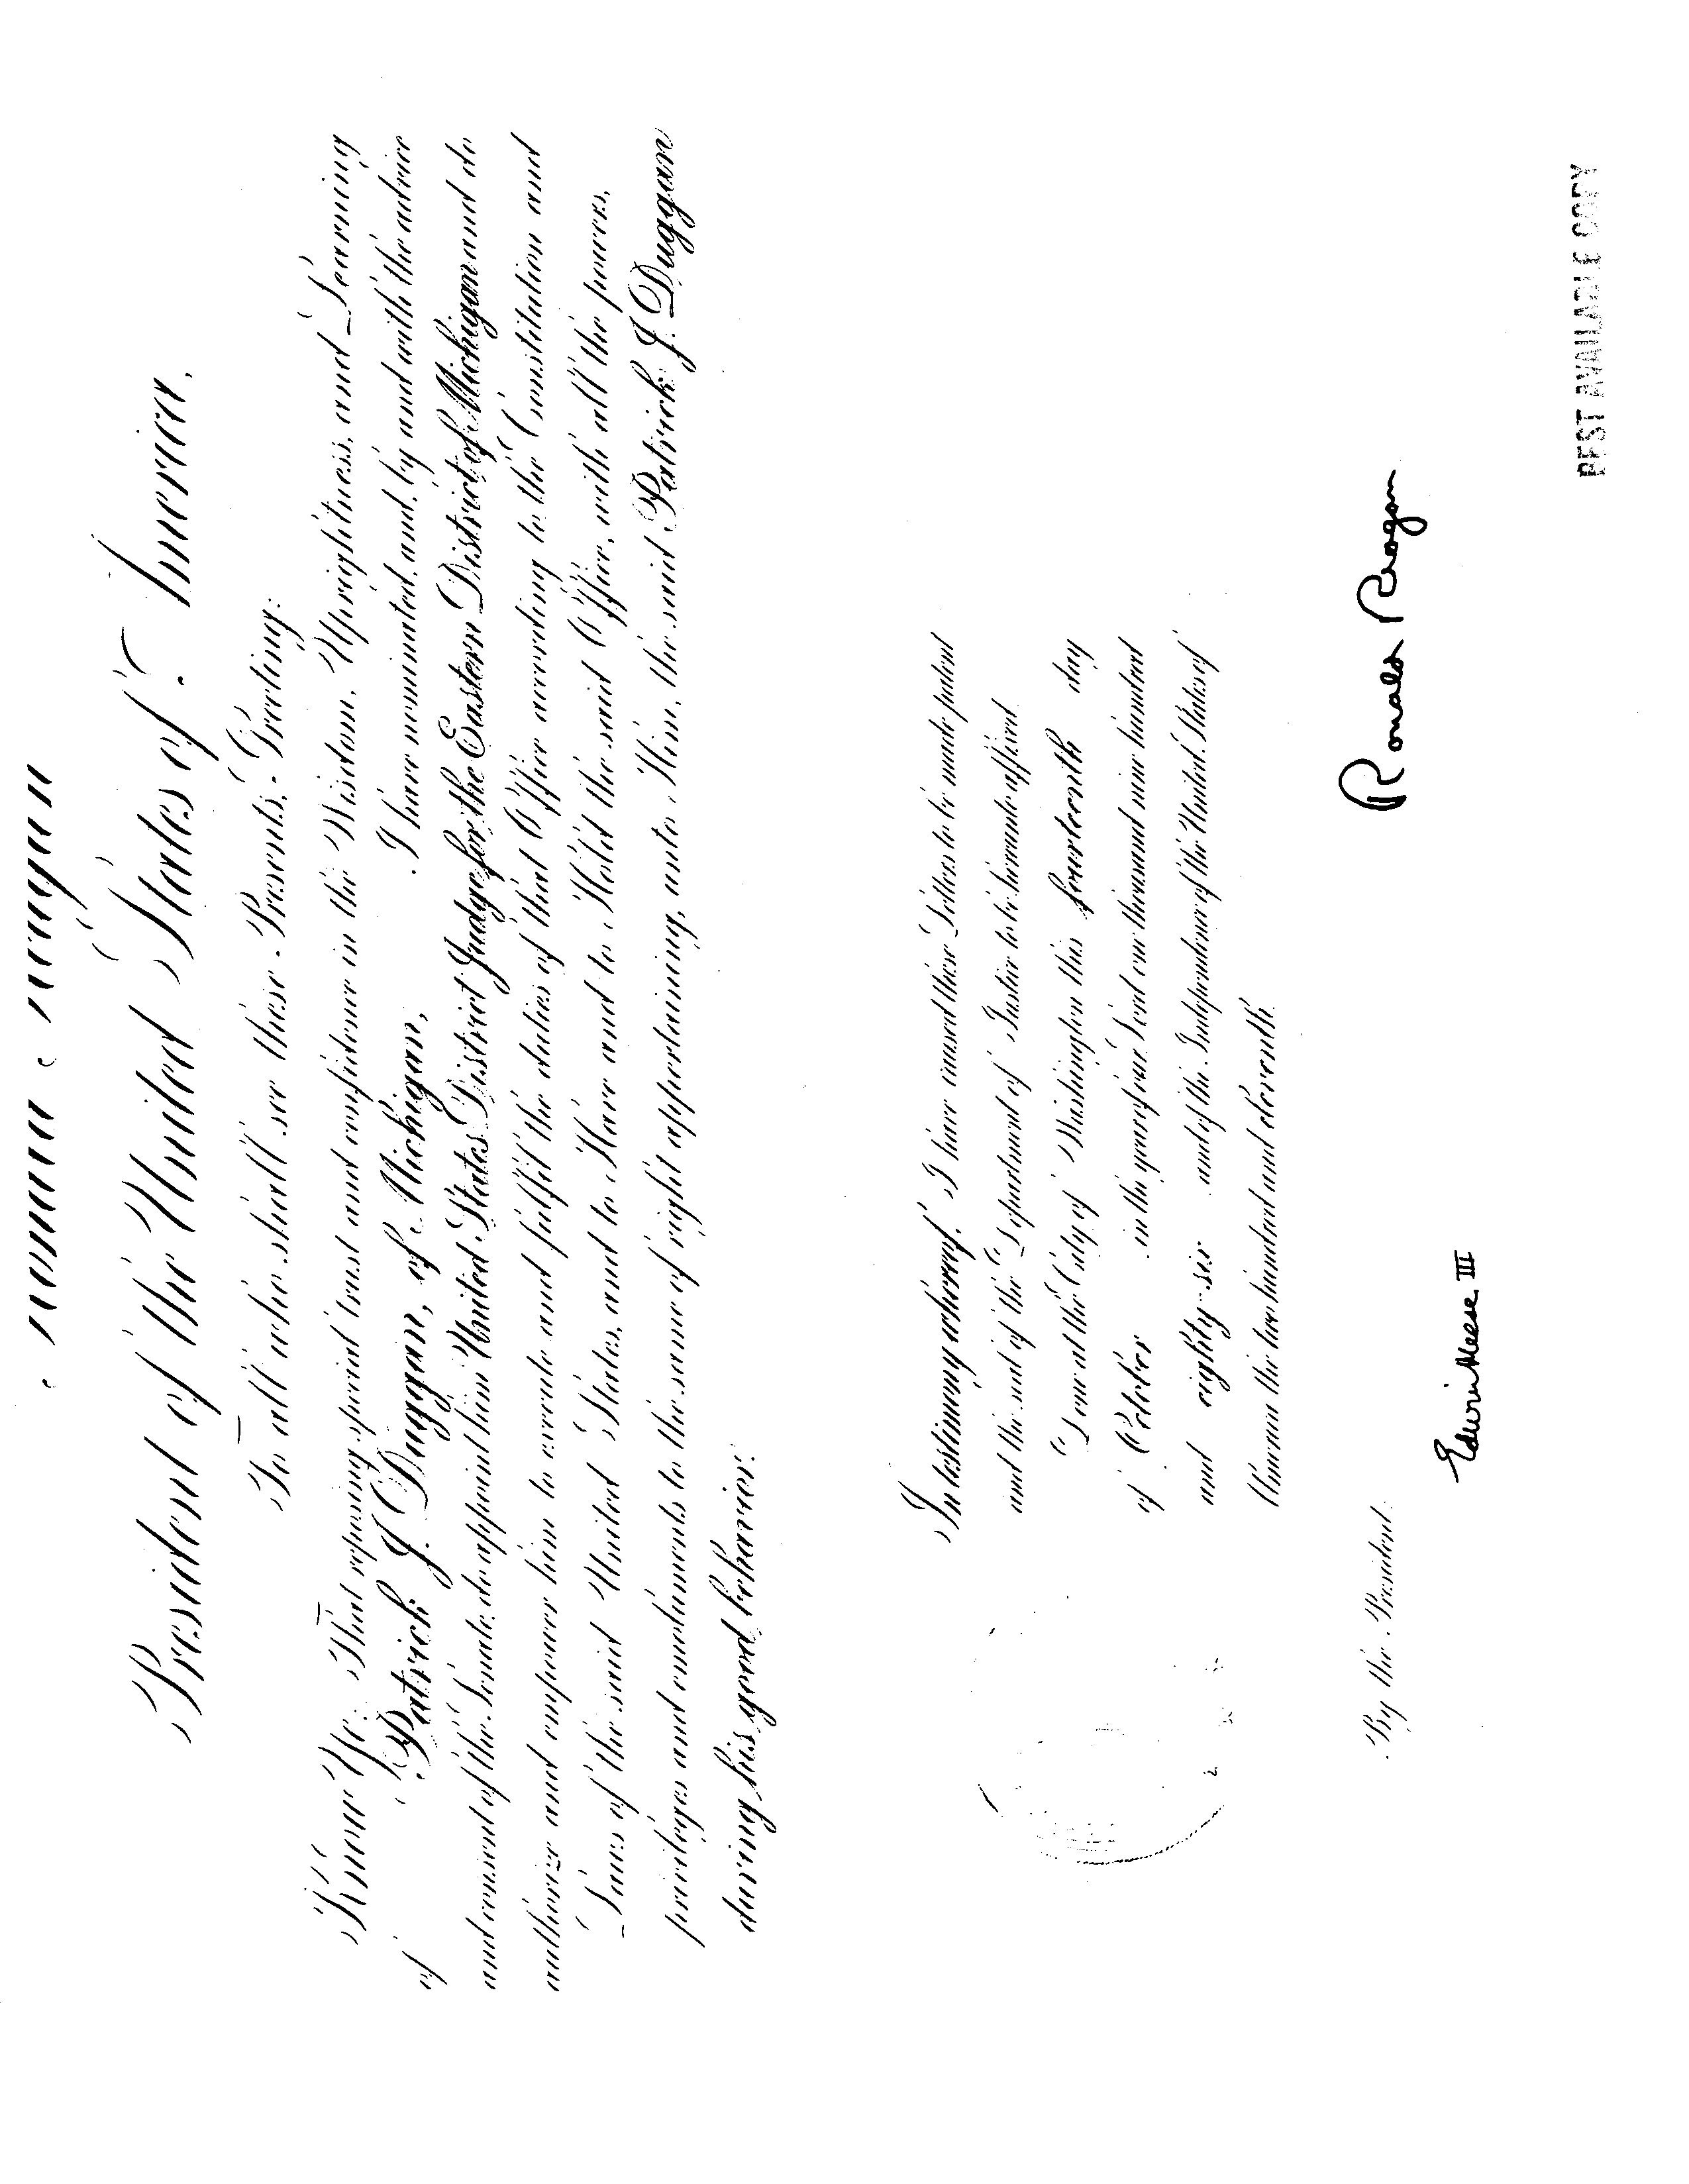 Ronald Reagan
President of the United States of America,
To all who shall see these Presents, Greeting:
Know Ye: That reposing special trust and confidence in the Wisdom, Uprightness, and Learning
of Patrick J. Duggan, of Michigan, I have nominated, and, by and with the advice
and consent of the Senate, do appoint him United States District Judge for the Eastern District of Michigan and do
authorize and empower him to execute and fulfil the duties of that Office according to the Constitution and
Laws of the said United States, and to Have and to Hold the said Office, with all the powers,
privileges and emoluments to the same of right appertaining, unto Him, the said Patrick J. Duggan
during his good behavior.
In testimony whereof, I have caused these Letters to be made patent
and the seal of the Department of Justice to be hereunto affixed.
Done at the City of Washington this fourteenth day
of October in the year of our Lord one thousand nine hundred
and eighty-six and of the Independence of the United States of
America the two hundred and eleventh.
Ronald Reagan
By the President:
Edwin Meese III
BEST AVAILABLE COPY